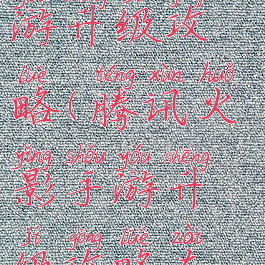 游升级攻
lüè téng xùn huǒ
略(腾讯火
yǐng shǒu yóu shēng
影手游升
jí gōng lüè zài
级攻略在